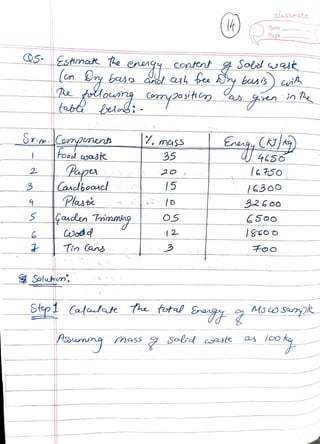 classmate
Date
Page
14
Q5. Estimate the energy content of Solid waste
(on Dry basis and ash free Dry basis) with
the following composition as given in the
table below:-
Sr.no. Components %. mass Energy (KJ/kg)
1 Food waste 35 4650
2 Paper 20 16750
3 Cardboard 15 16300
4 Plastic 10 32600
5 Garden Trimming 05 6500
6 Wood 12 18600
7 Tin Cans 3 700
Solution:
Step 1 Calculate the total Energy of MSW Sample
Assuming mass of solid waste as 100 kg